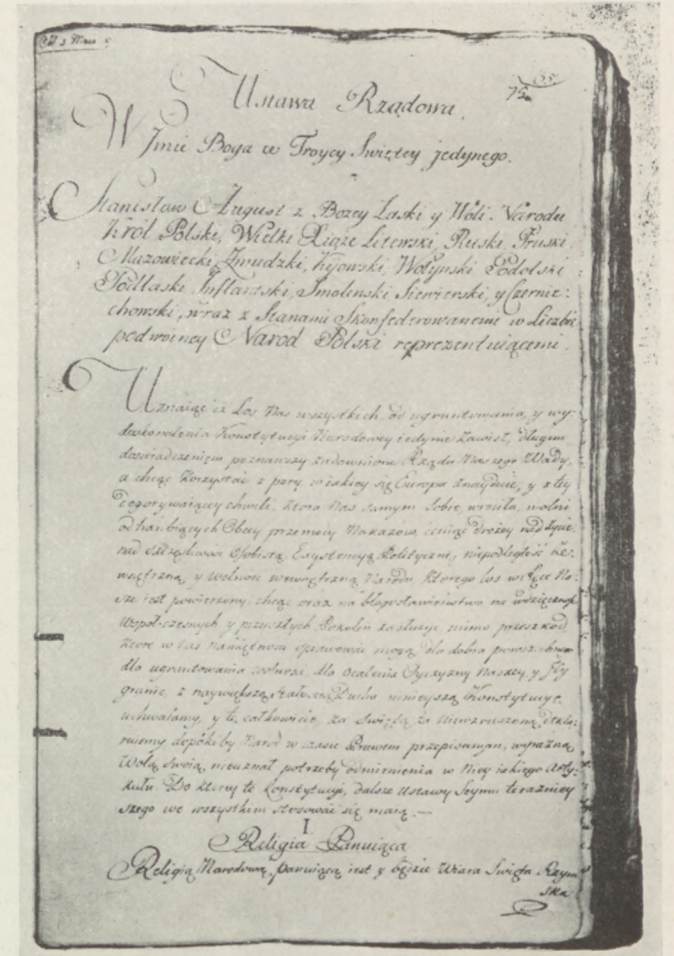 Ustawa Rządowa.
W Jmie Boga w Troycy Swiętey jedynego.
Stanisław August z Bożey Łaski y Woli Narodu
Król Polski, Wielki Xiąże Litewski, Ruski, Pruski
Mazowiecki, Zmudzki, Kijowski, Wołynski Podolski
Podlaski, Inflantski, Smolenski Siewierski, y Czernie-
chowski, wraz z Stanami Skonfederowanemi w Liczbie
podwoiney Narod Polski reprezentuiącemi.
Uznaiąc iż Los Nas wszystkich, od ugruntowania, y wy-
doskonalenia Konstytucyi Narodowey iedynie zawisł, długim
doświadczeniem poznawszy zadawnione Rządu Naszego Wady,
a chcąc korzystać z pory, w iakiey się Europa znayduie, y z tey
dogorywaiącey chwili, ktora Nas samym Sobie wrociła, wolni
od hanbiących Obcey przemocy Nakazow, ceniąc drożey nad życie,
nad szczęśliwosć Osobistą Exystencyą Polityczną, niepodległosć ze-
wnętrzną, y wolnosć wewnętrzną Narodu, ktorego los w Ręce Na-
sze iest powierzony, chcąc oraz na błogosławieństwo na wdzięcznosć
Wspołczesnych y przyszłych Pokoleń zasłużyć, mimo przeszkod,
ktore w Nas namiętnosci sprawować mogą, dla dobra powszechnego
dla ugruntowania wolnosci, dla ocalenia Oyczyzny Naszey, y Jey
granic, z naywiększą stałoscią Ducha ninieyszą Konstytucyę
uchwalamy, y tę całkowicie, za Swiętą, za Niewzruszoną dekla-
ruiemy, dopokiby Narod w czasie Prawem przepisanym, wyrazną
Wolą Swoią, nieuznał potrzeby odmienienia w Niey iakiego Arty-
kułu. Do ktorey to Konstytucyi, dalsze Ustawy Seymu teraznie-
szego we wszystkim stosować się maią.—
I
Religia Panuiąca
Religią Narodową, panuiącą iest y będzie Wiara Swięta Rzym-
ska